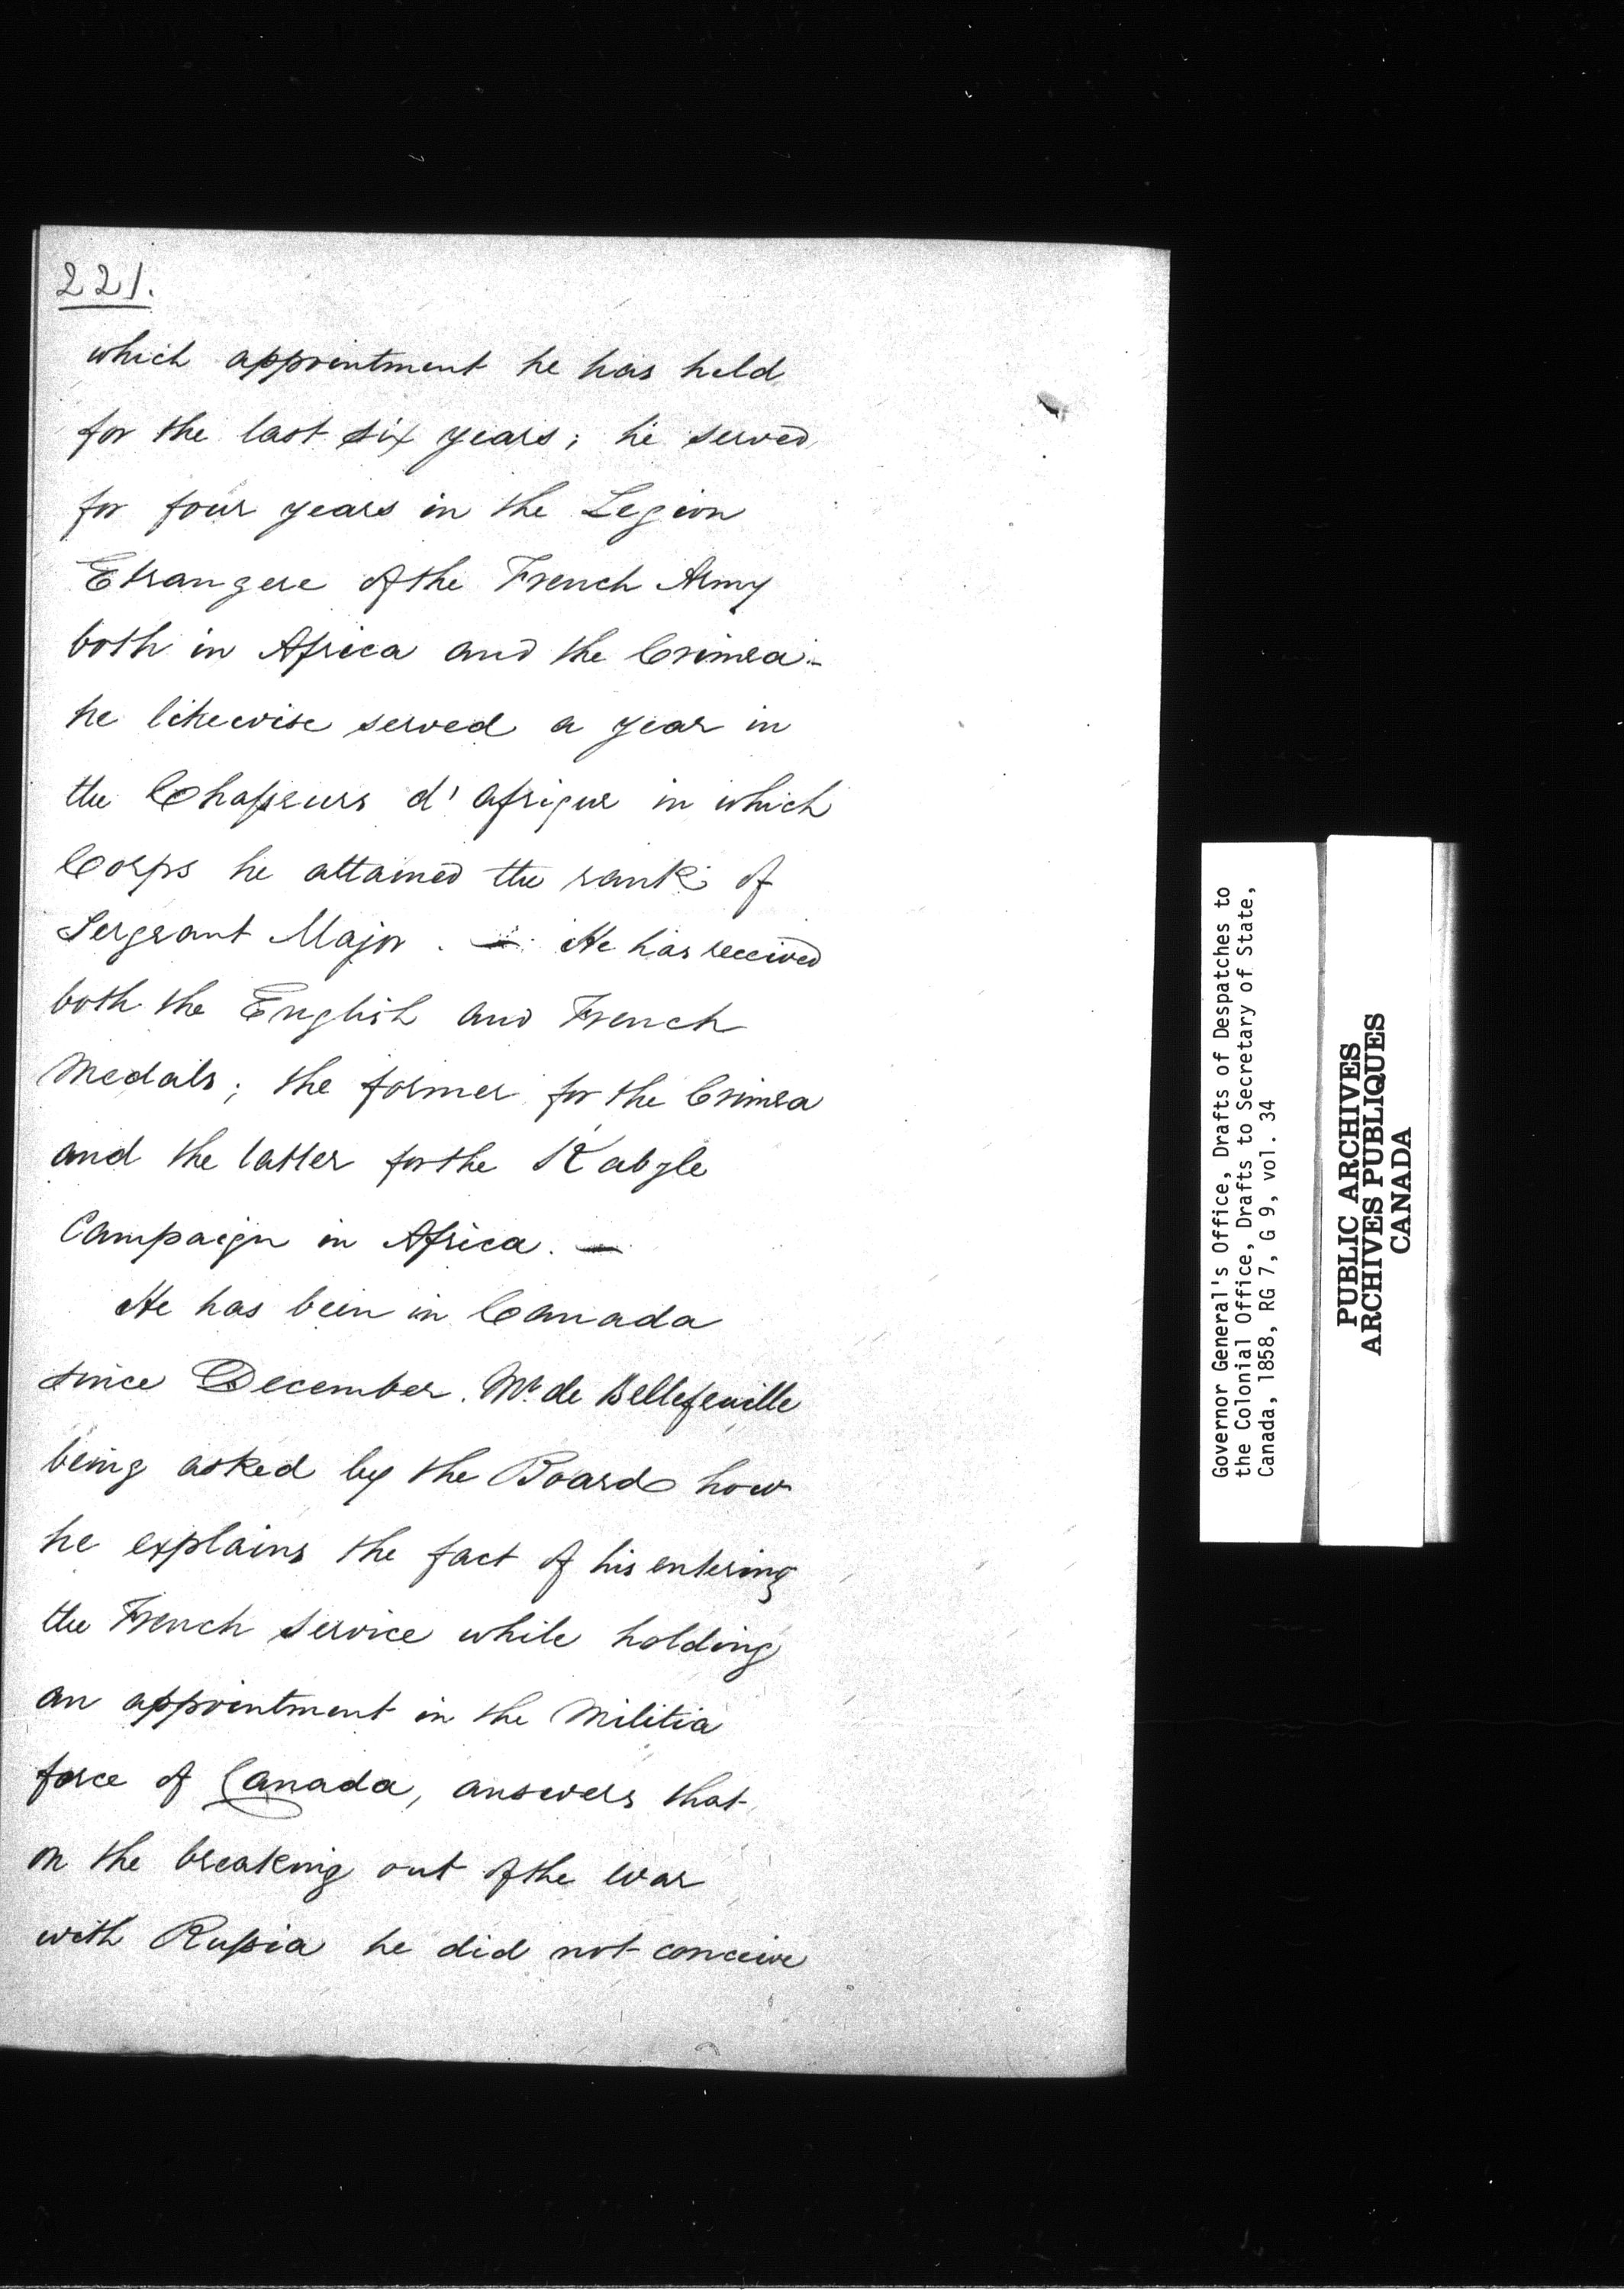 221.
which appointment he has held
for the last six years; he served
for four years in the Legion
Etrangere of the French Army
both in Africa and the Crimea -
he likewise served a year in
the Chasseurs d'afrique in which
Corps he attained the rank of
Sergeant Major. — He has received
both the English and French
Medals; the former for the Crimea
and the latter for the Kabyle
Campaign in Africa. —
He has been in Canada
since December. Mr de Bellefeuille
being asked by the Board how
he explains the fact of his entering
the French service while holding
an appointment in the Militia
force of Canada, answers that
on the breaking out of the war
with Russia he did not conceive
Governor General's Office, Drafts of Despatches to
the Colonial Office, Drafts to Secretary of State,
Canada, 1858, RG 7, G 9, vol. 34
PUBLIC ARCHIVES
ARCHIVES PUBLIQUES
CANADA